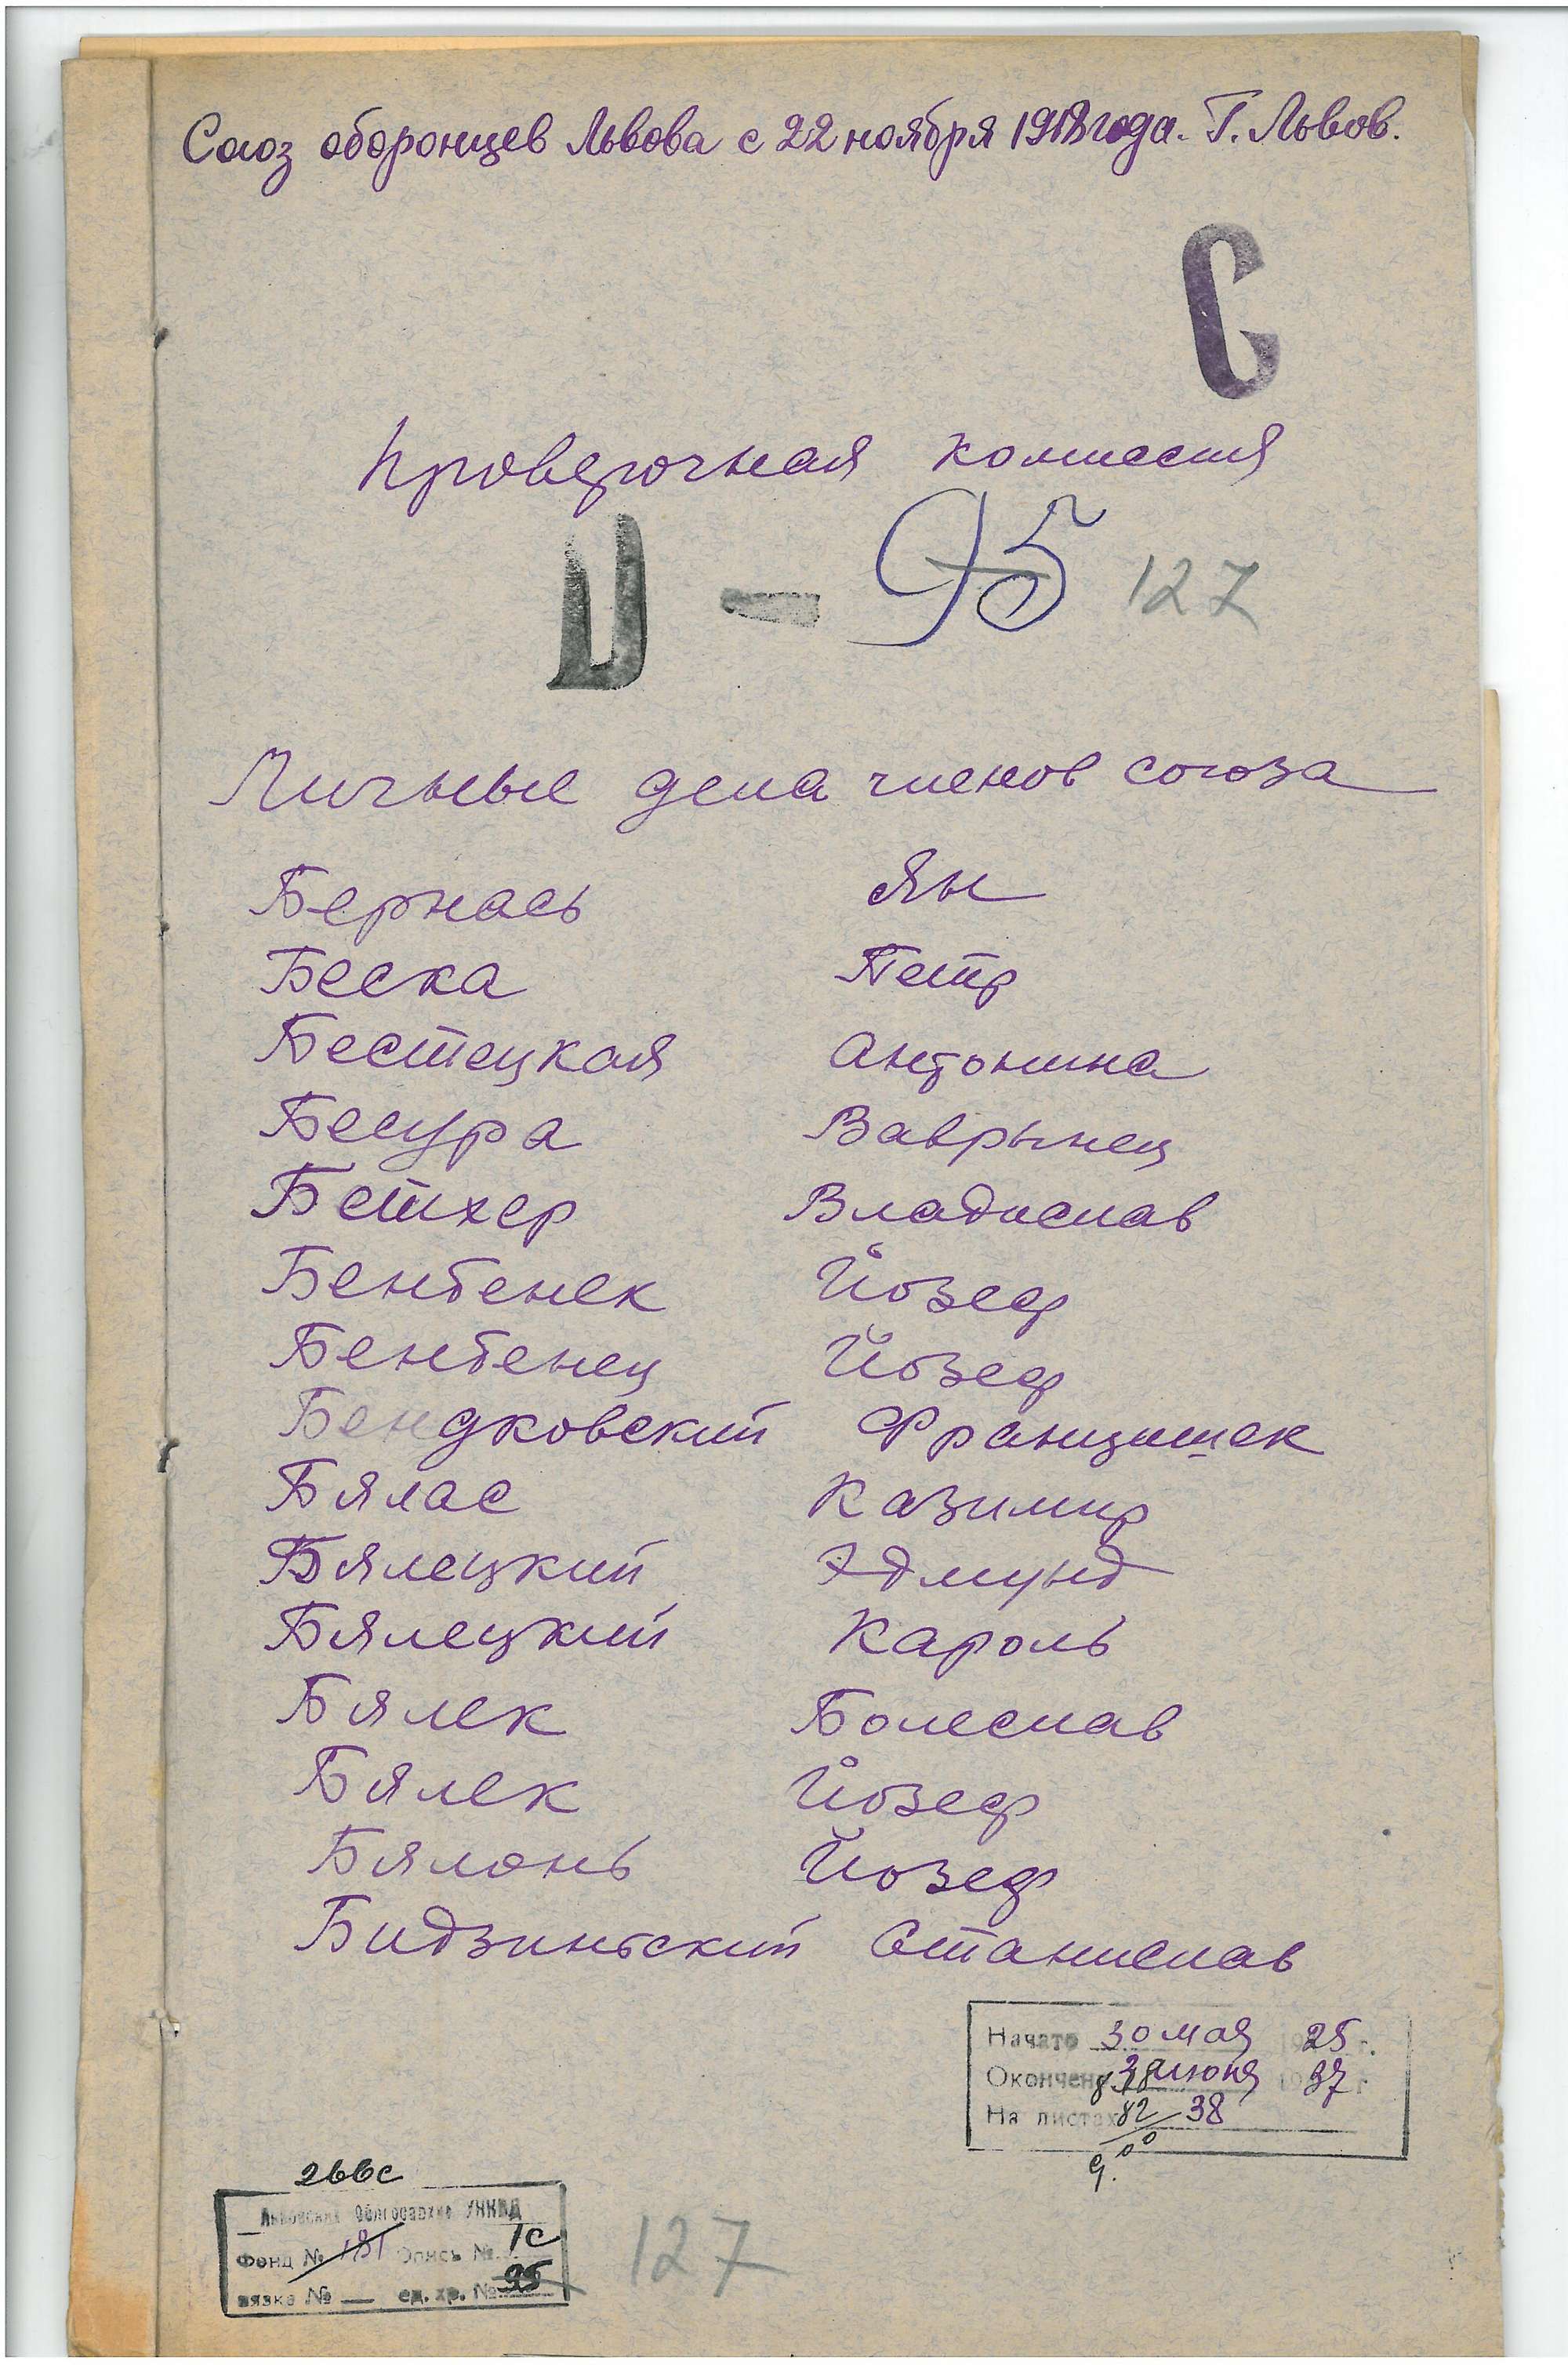 Союз оборонцев Львова с 22 ноября 1918 года. Г. Львов.
С
Проверочная комиссия
U - 95 127
Личные дела членов союза
Бернась Ян
Беска Петр
Бестецкая Антонина
Бецура Ваврынец
Бетхер Владислав
Бенбенек Йозеф
Бенбенец Йозеф
Бендковский Францишек
Бялас Казимир
Бялецкий Эдмунд
Бялецкий Кароль
Бялек Болеслав
Бялек Йозеф
Бялонь Йозеф
Бидзиньский Станислав
Начато 30 мая 1925 г.
Окончено июня 1937 г
На листах 82 38
266с
Львовский Облгосархив УНКВД
Фонд № 181 Опись № 1с
вязка № — ед. хр. № 95
127